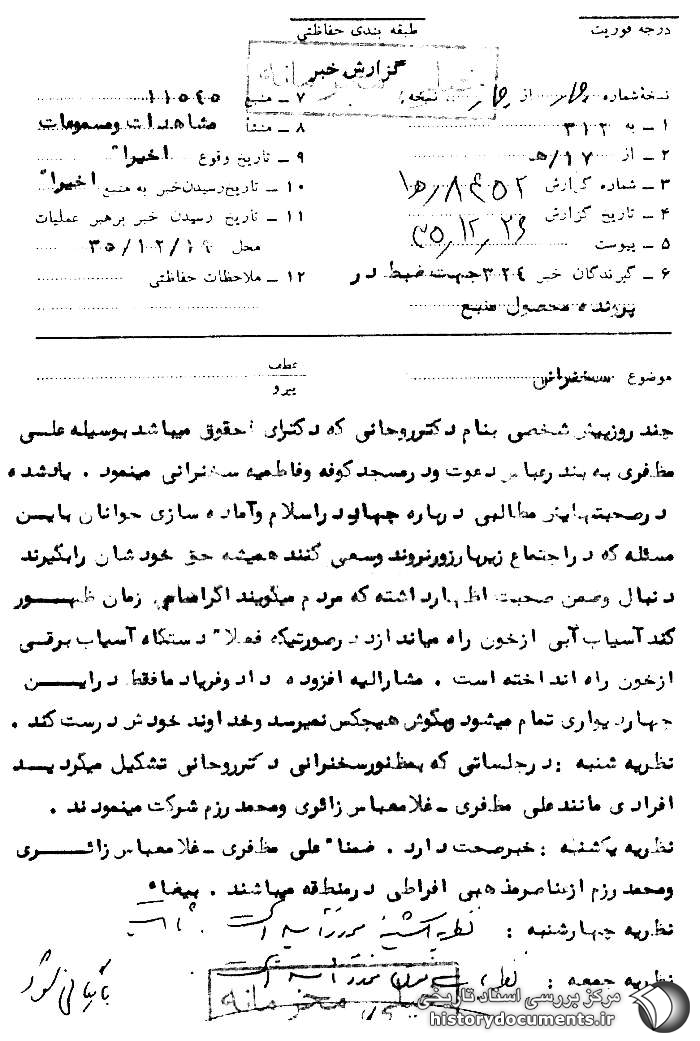 درجه فوریت
طبقه بندی حفاظتی
گزارش خبر
نسخهٔ شماره چهار از چهار نسخه
۱ – به ۳۱۲
۲ – از ۱۷/ه
۳ – شماره گزارش
۴ – تاریخ گزارش ۳۵,۱۲,۲۶
۵ – پیوست
۶ – گیرندگان خبر ۳۲۴ جهت ضبط در
پرونده محصول منبع
۷ – منبع ۱۱۵۴۵
۸ – منشأ مشاهدات و مسموعات
۹ – تاریخ وقوع اخیراً
۱۰ – تاریخ رسیدن خبر به منبع اخیراً
۱۱ – تاریخ رسیدن خبر برهبر عملیات
محل ۳۵/۱۲/۱۹
۱۲ – ملاحظات حفاظتی
موضوع سخنرانی
عطف
پیرو
چند روز پیش شخصی بنام دکتر روحانی که دکترای حقوق میباشد بوسیله علی
مظفری به بندرعباس دعوت و در مسجد کوفه و فاطمیه سخنرانی مینمود . یادشده
در صحبتهایش مطالبی درباره جهاد در اسلام و آماده سازی جوانان باین
مسئله که در اجتماع زیر بار زور نروند و سعی کنند همیشه حق خودشان را بگیرند
دنبال و ضمن صحبت اظهار داشته که مردم میگویند اگر امام زمان ظهور
کند آسیاب آبی از خون راه میاندازد در صورتیکه فعلاً دستگاه آسیاب برقی
از خون راه انداخته است . مشارالیه افزوده داد و فریاد ما فقط در این
چهاردیواری تمام میشود و بگوش هیچکس نمیرسد و خداوند خودش درست کند .
نظریه شنبه : در جلساتی که بمنظور سخنرانی دکتر روحانی تشکیل میگردید
افرادی مانند علی مظفری – غلامعباس زائری و محمد رزم شرکت مینمودند .
نظریه یکشنبه : خبر صحت دارد . ضمناً علی مظفری – غلامعباس زائری
و محمد رزم از عناصر مذهبی افراطی در منطقه میباشند . بیضاء
نظریه چهارشنبه : نظریه یکشنبه مورد تائید است .
نظریه جمعه : مورد تائید است
بایگانی شود
خیلی محرمانه
مرکز بررسی اسناد تاریخی
historydocuments.ir